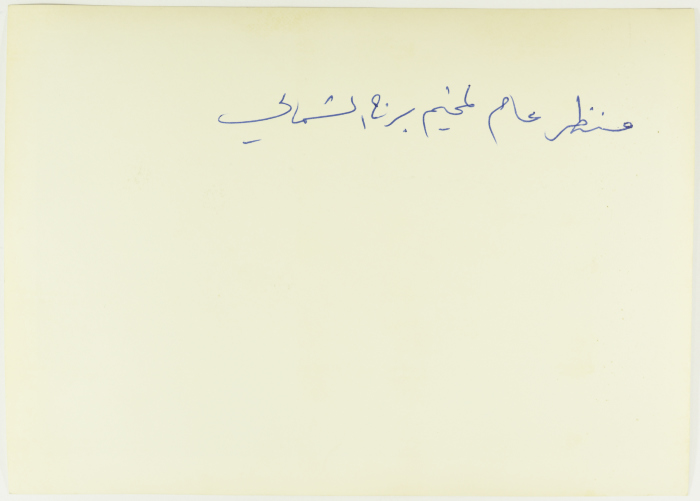 منظر عام لمخيم برج الشمالي